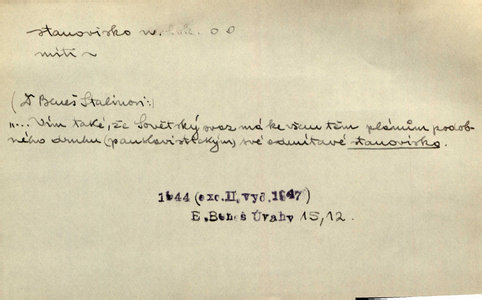 stanovisko
míti ~
(Dr Beneš Stalinovi:)
„... Vím také, že Sovětský svaz má ke všem těm plánům podob-
ného druhu (panslavistickým) své odmítavé stanovisko.
1944 (exc. II. vyd. 1947)
E. Beneš Úvahy 15, 12.